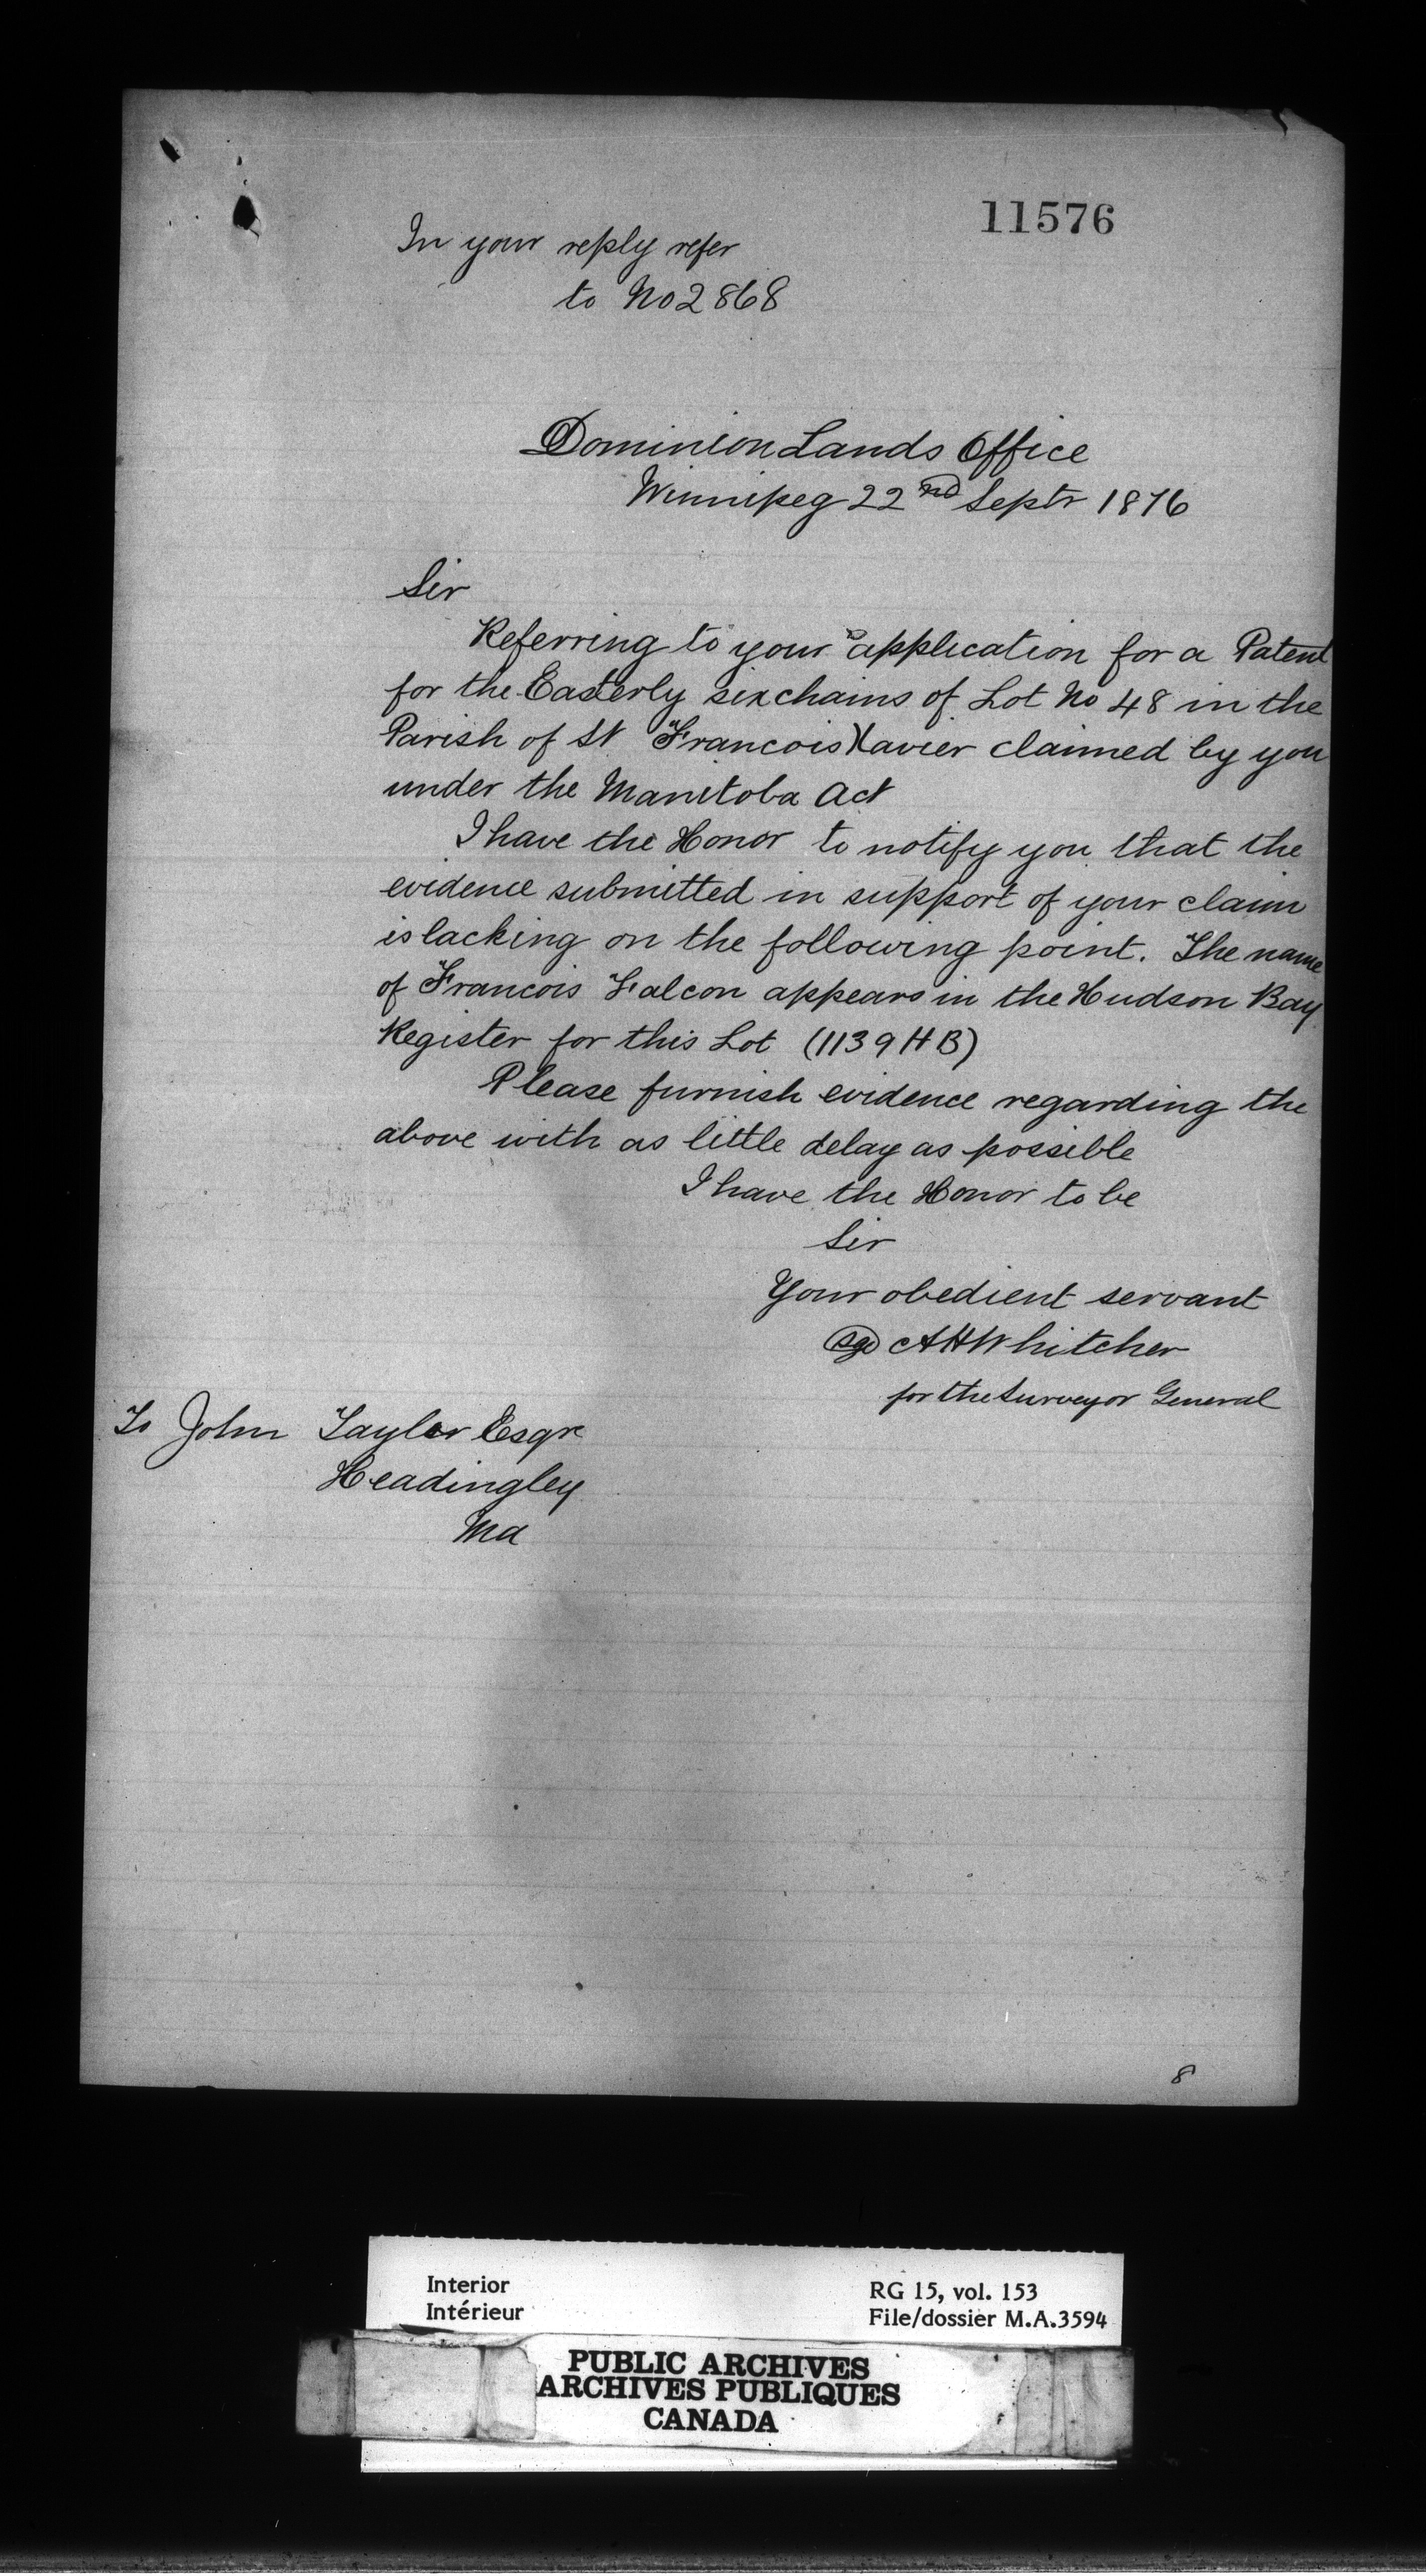 11576
In your reply refer
to No 2868
Dominion Lands Office
Winnipeg 22nd Septr 1876
Sir
Referring to your application for a Patent
for the Easterly six chains of Lot No 48 in the
Parish of St Francois Xavier claimed by you
under the Manitoba Act
I have the Honor to notify you that the
evidence submitted in support of your claim
is lacking on the following point. The name
of Francois Falcon appears in the Hudson Bay
Register for this Lot (1139 H B)
Please furnish evidence regarding the
above with as little delay as possible
I have the Honor to be
Sir
Your obedient servant
sgd A H Whitcher
for the Surveyor General
To John Taylor Esqr
Headingley
Ma
8
Interior
Intérieur
RG 15, vol. 153
File/dossier M.A.3594
PUBLIC ARCHIVES
ARCHIVES PUBLIQUES
CANADA